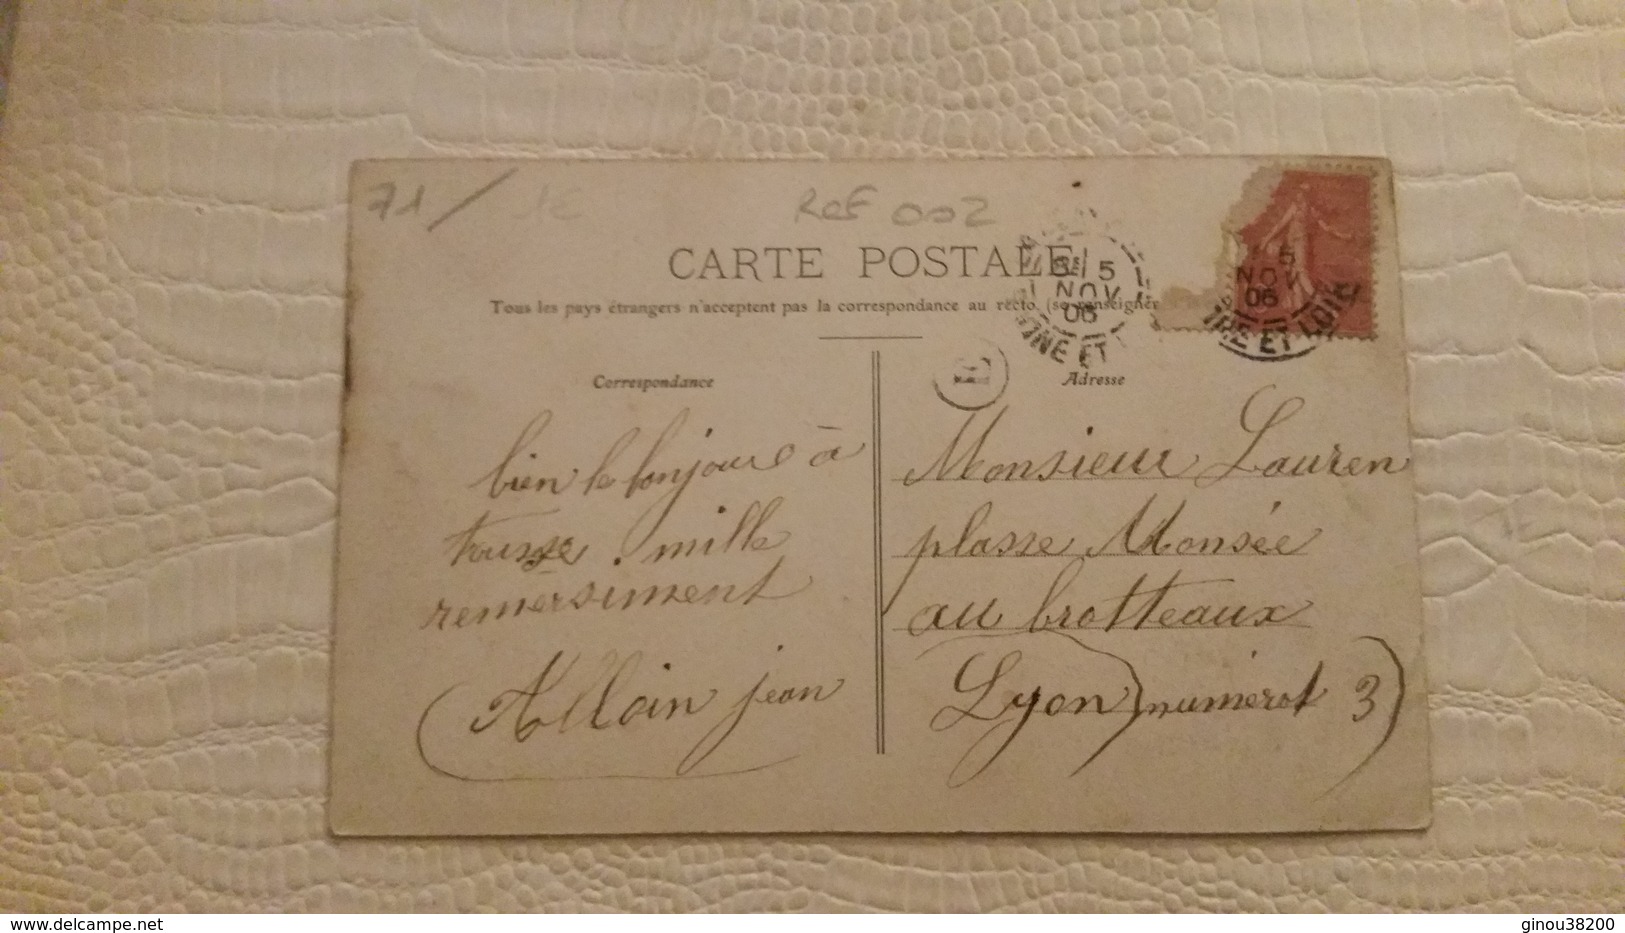 71/ 1€ Ref 002
CARTE POSTALE
Tous les pays étrangers n'acceptent pas la correspondance au recto (se renseigner
5 NOV 06
SAONE ET
5 NOV 06
ET LOIRE
Correspondance
bien le bonjour à
tousse mille
remersiment
Alloin jean
Adresse
Monsieur Lauren
plasse Monsée
au brotteaux
Lyon numérot 3
delcampe.net
ginou38200